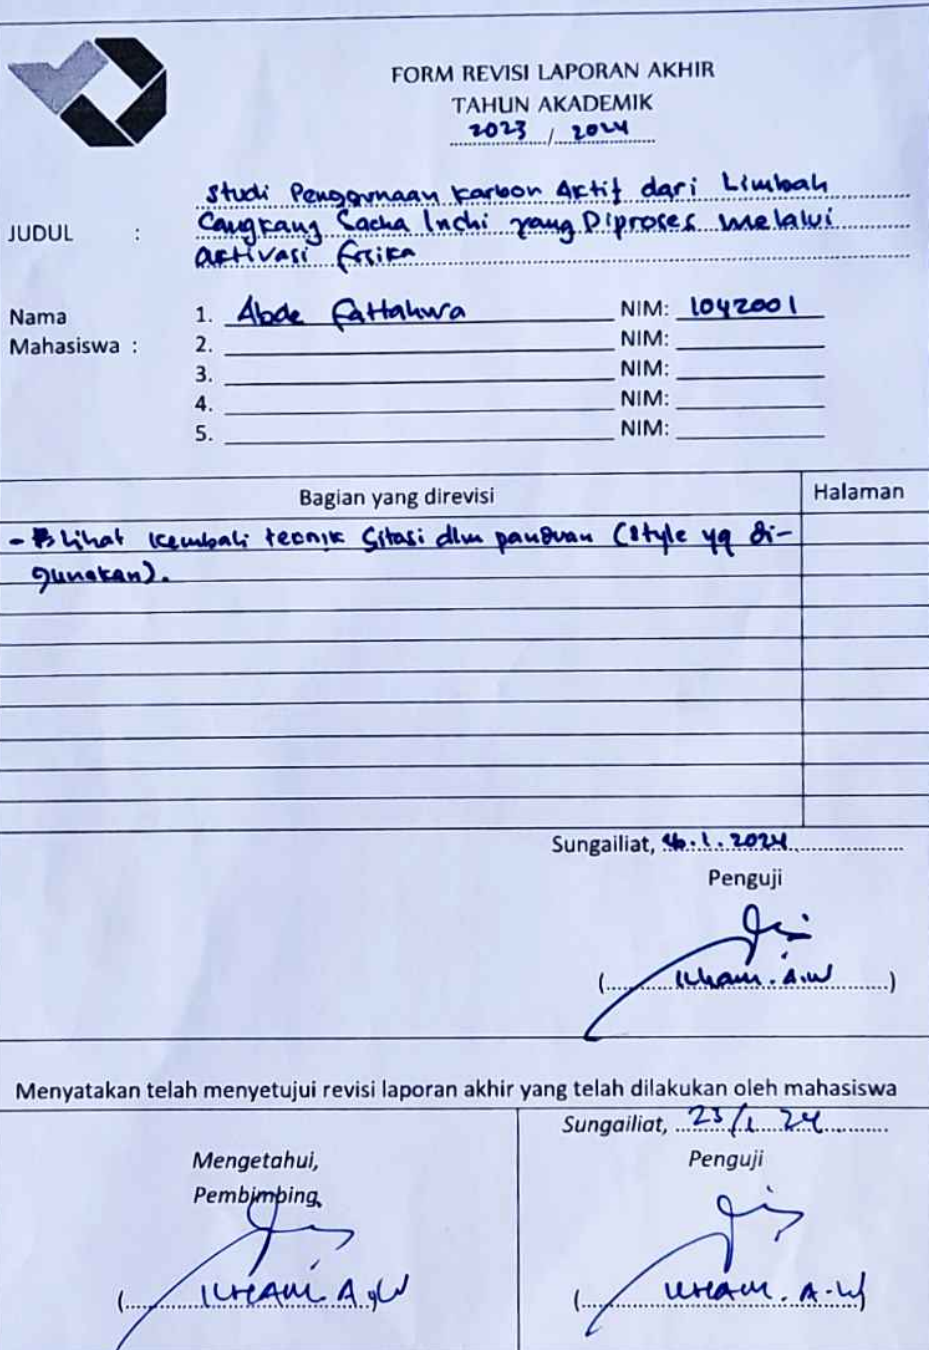 FORM REVISI LAPORAN AKHIR
TAHUN AKADEMIK
2023 / 2024
JUDUL : Studi Penggunaan Karbon Aktif dari Limbah
Cangkang Sacha Inchi yang Diproses melalui
aktivasi fisika
Nama
Mahasiswa :
1. Abde Fattahwa NIM: 1042001
2. NIM:
3. NIM:
4. NIM:
5. NIM:
Bagian yang direvisi Halaman
- Lihat kembali teknik Sitasi dlm panduan (Style yg di-
gunakan).
Sungailiat, .1.2024
Penguji
(Ilham. A.W)
Menyatakan telah menyetujui revisi laporan akhir yang telah dilakukan oleh mahasiswa
Sungailiat, 23/1 24
Mengetahui,
Pembimbing,
(ILHAM A.W
Penguji
(ILHAM. A.W)